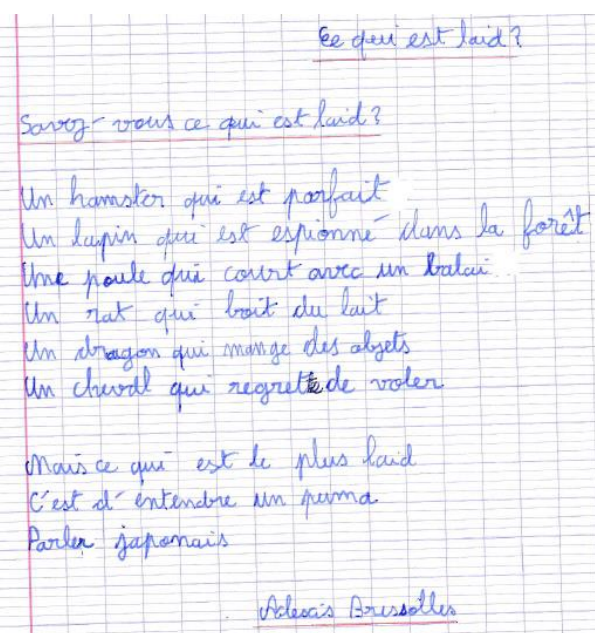 Ce qui est laid?
Savez-vous ce qui est laid?
Un hamster qui est parfait
Un lapin qui est espionné dans la forêt
Une poule qui court avec un balai
Un rat qui boit du lait
Un dragon qui mange des objets
Un cheval qui regrette de voler
Mais ce qui est le plus laid
C'est d'entendre un puma
Parler japonais
Alexis